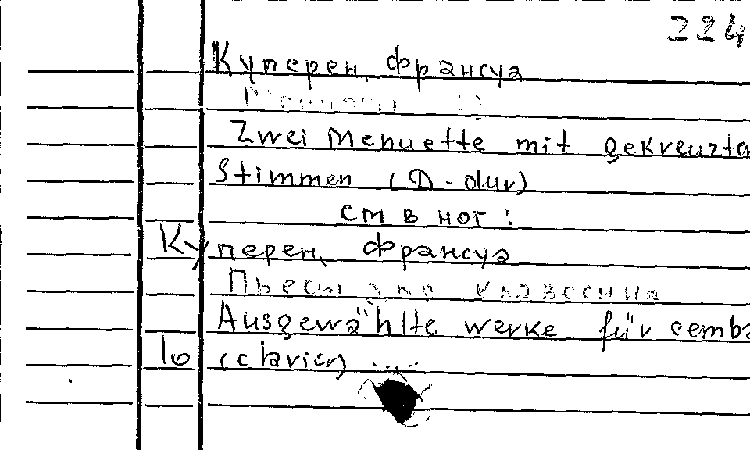 224
Куперен, Франсуа
Zwei Menuette mit gekreuzte
Stimmen (D-dur)
см в ног:
Куперен, Франсуа
Пьесы для клавесина
Ausgewählte werke für cemba
10 (clavier)